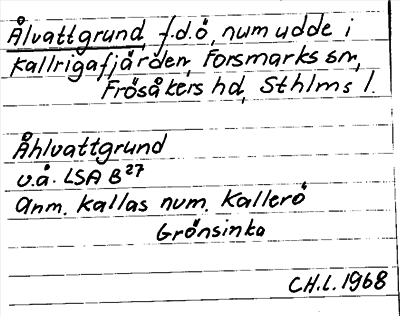 Ålvattgrund, f.d.ö, num udde i
Kallrigafjärden, Forsmarks sn,
Frösåkers hd, Sthlms l.
Åhlvattgrund
u.å. LSA B²⁷
Anm. Kallas num. Kallerö
Grönsinka
CH.l. 1968